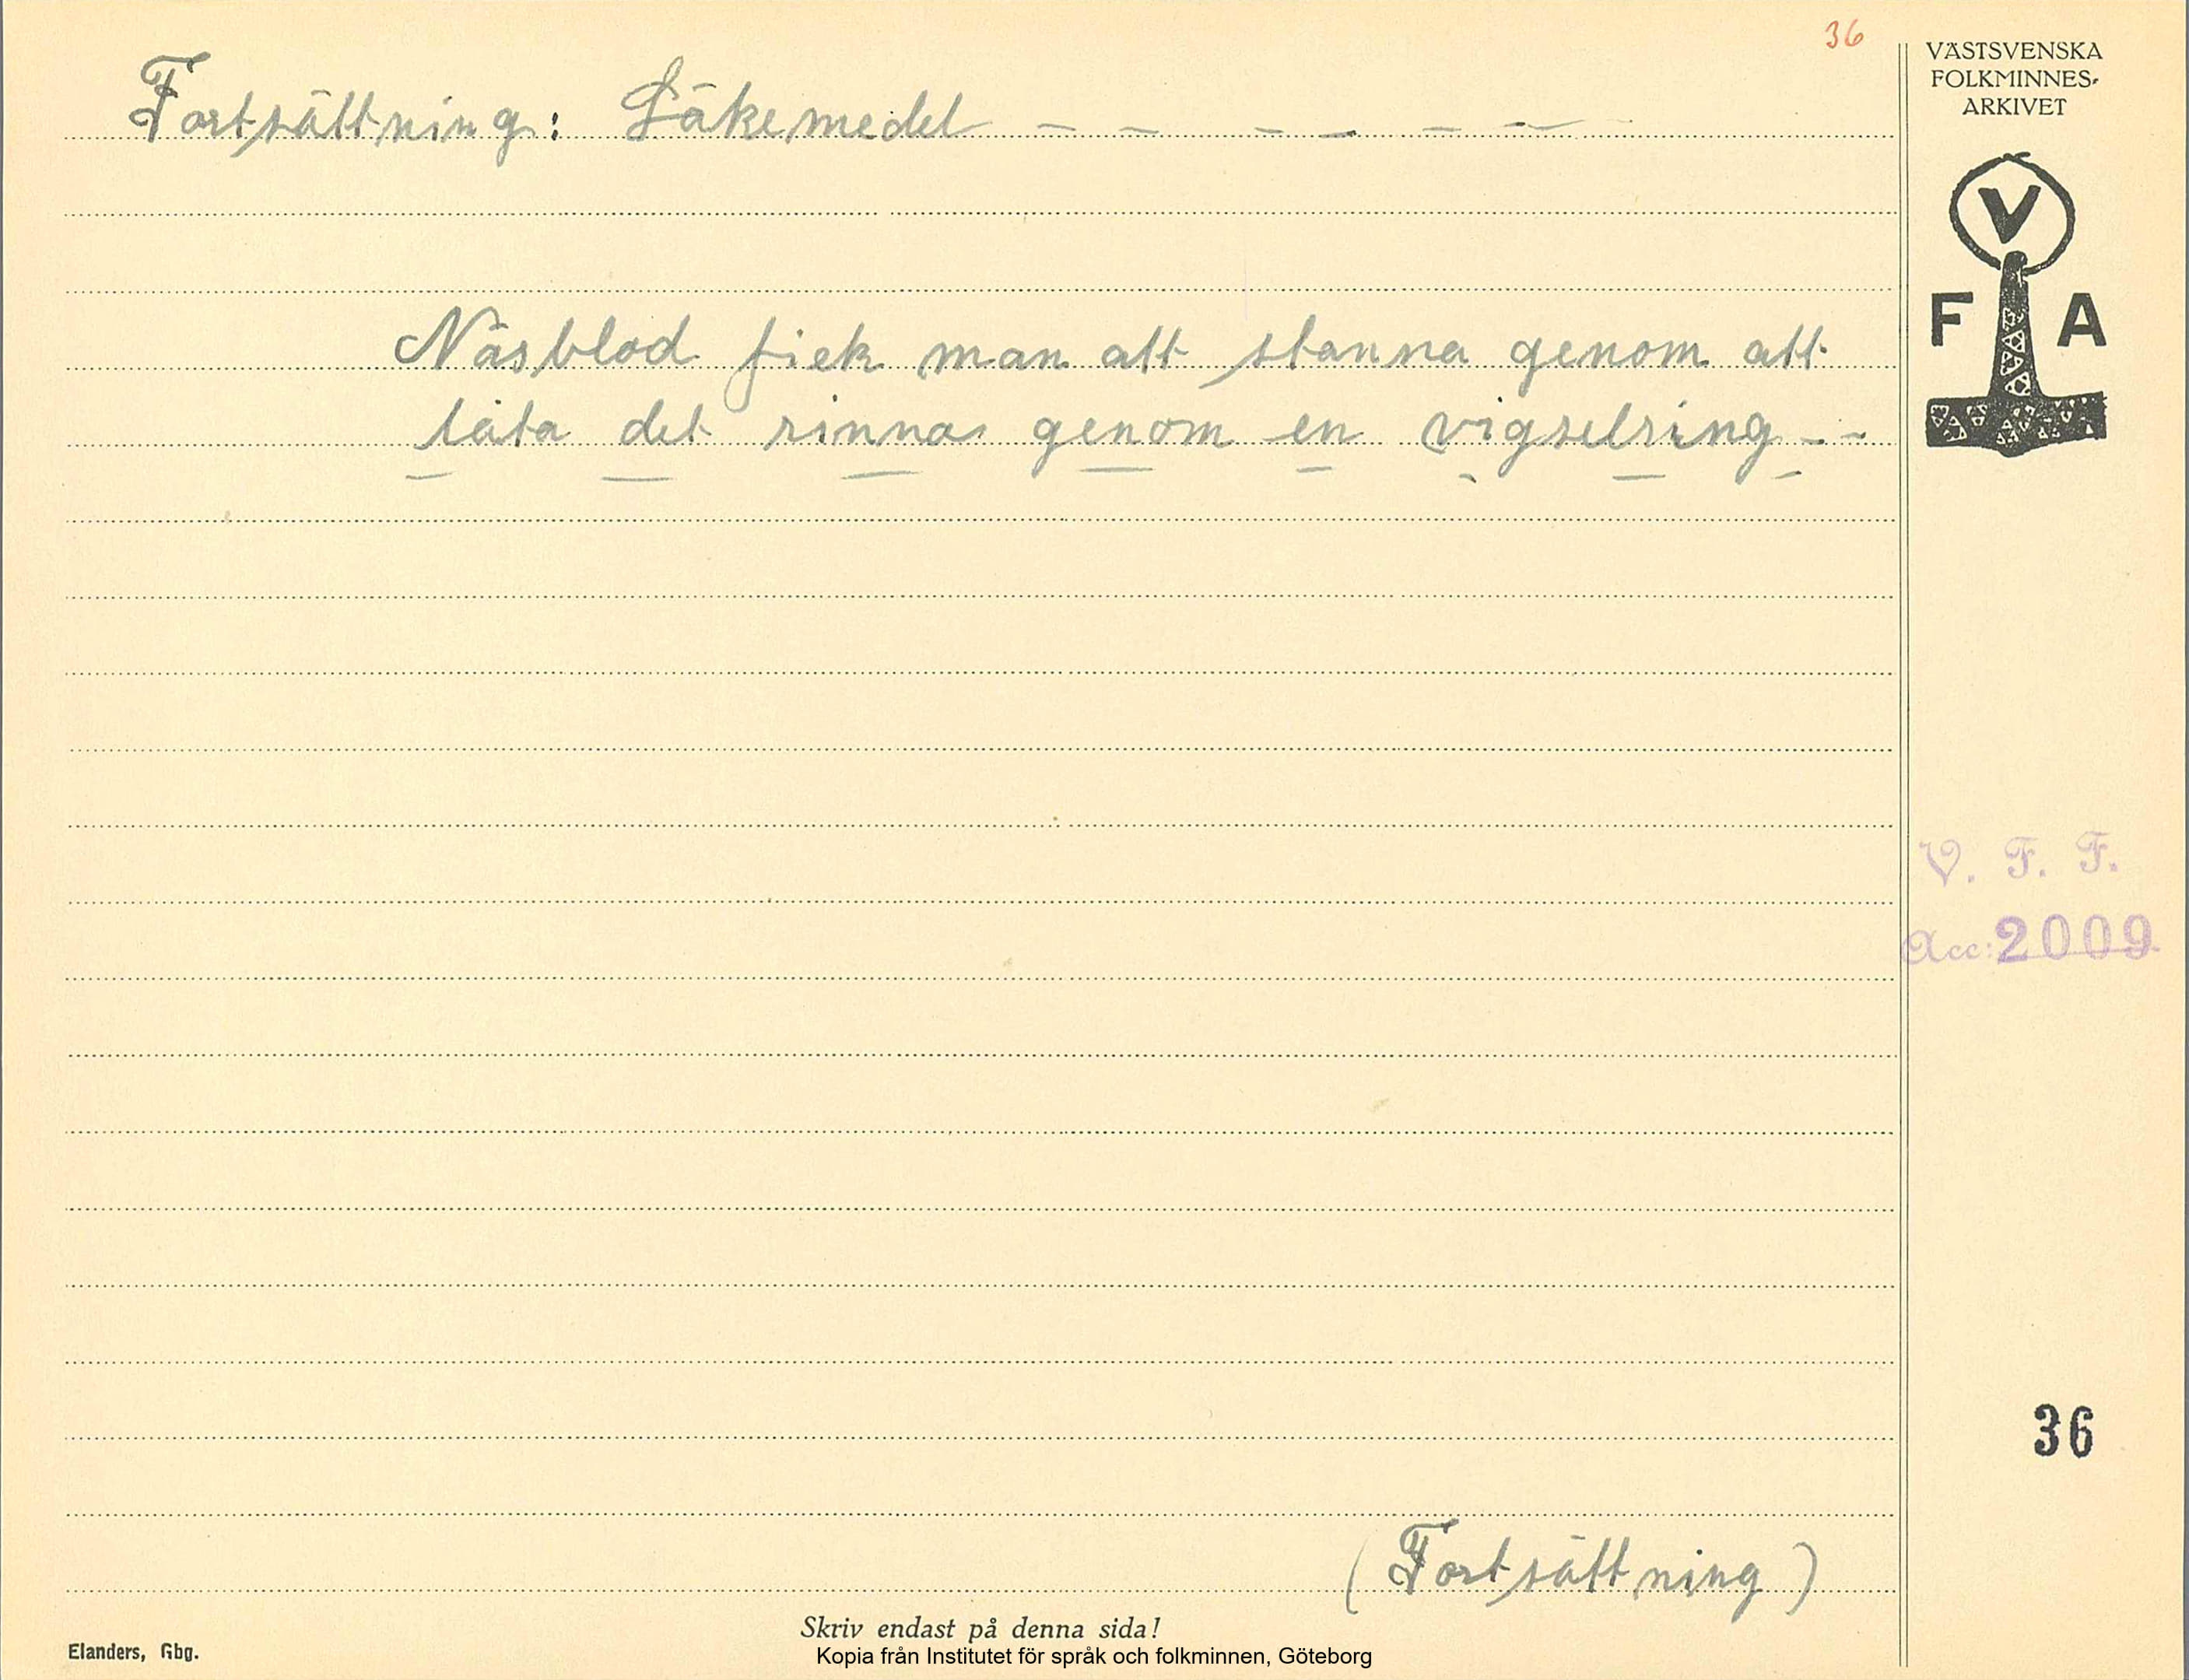 36
Fortsättning: Läkemedel - - - - - -
Näsblod fick man att stanna genom att
låta det rinna genom en vigselring - -
VÄSTSVENSKA
FOLKMINNES-
ARKIVET
V
F A
V. F. F.
Acc: 2009
36
(Fortsättning)
Skriv endast på denna sida!
Elanders, Gbg.
Kopia från Institutet för språk och folkminnen, Göteborg